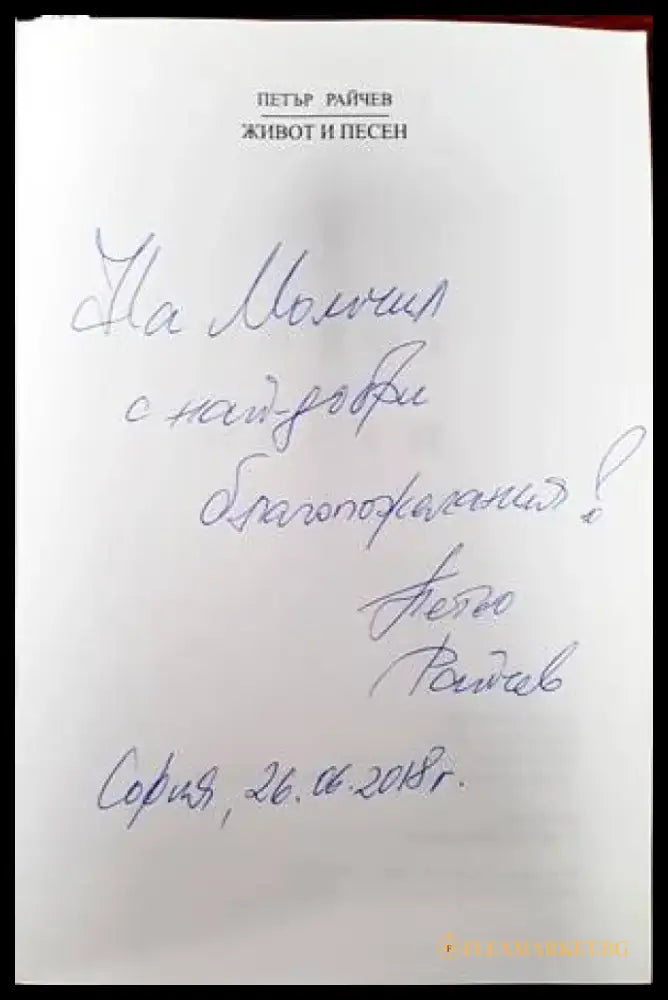 ПЕТЪР РАЙЧЕВ
ЖИВОТ И ПЕСЕН
На Момчил
с най-добри
благопожелания!
Петьо
Райчев
София, 26.06.2018 г.
FLEAMARKET.BG